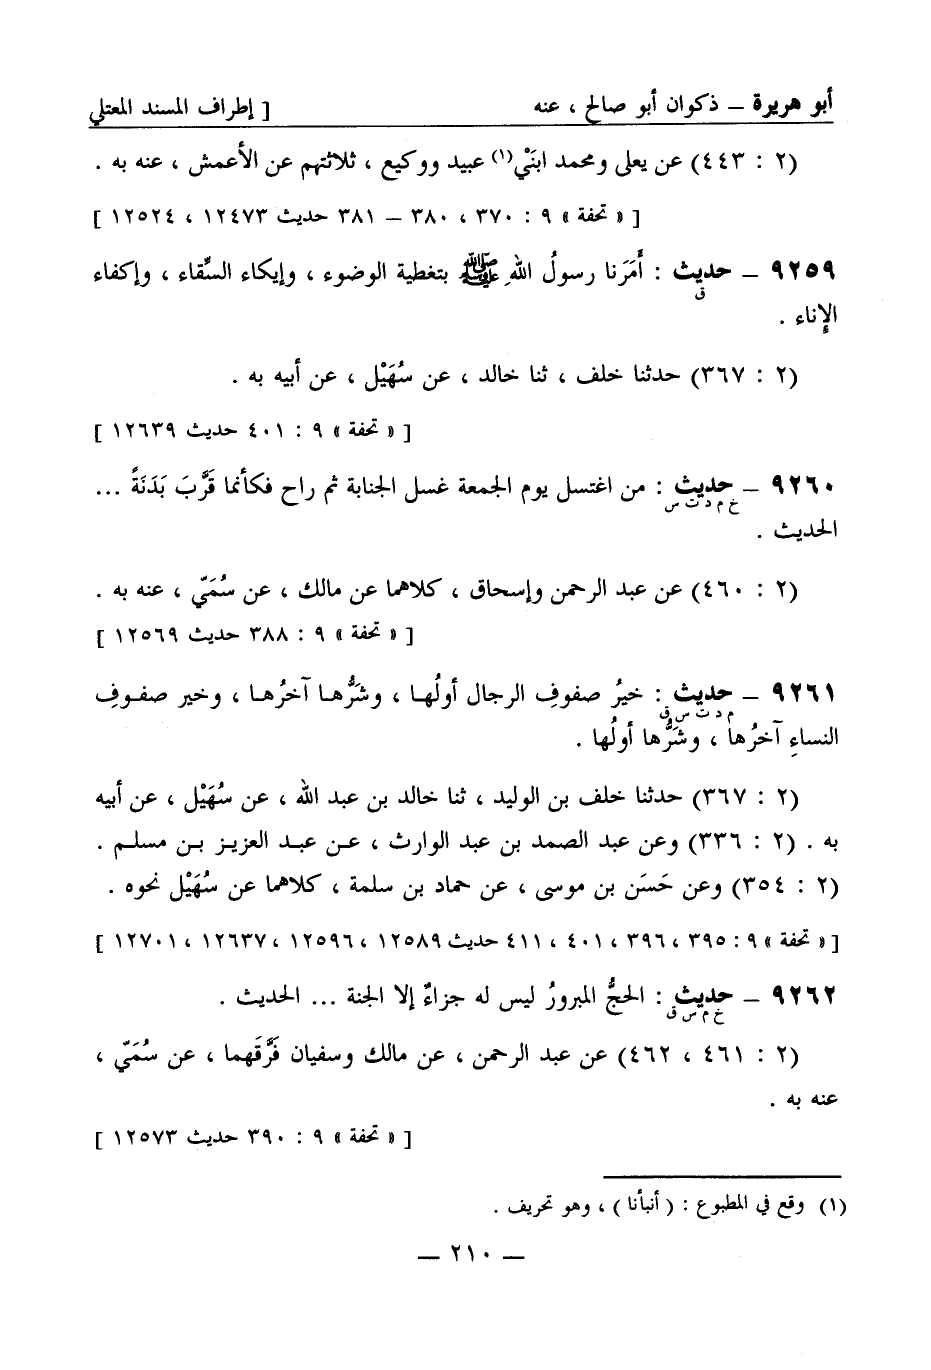 أبو هريرة – ذكوان أبو صالح ، عنه [ إطراف المسند المعتلي
(٢ : ٤٤٣) عن يعلى ومحمد ابنَيْ(١) عبيد ووكيع ، ثلاثتهم عن الأعمش ، عنه به .
[ « تحفة » ٩ : ٣٧٠ ، ٣٨٠ – ٣٨١ حديث ١٢٤٧٣ ، ١٢٥٢٤ ]
٩٢٥٩ – حديث : أَمَرَنا رسولُ اللهِ ﷺ بتغطية الوضوء ، وإيكاء السِّقاء ، وإكفاء
ق
الإناء .
(٢ : ٣٦٧) حدثنا خلف ، ثنا خالد ، عن سُهَيْل ، عن أبيه به .
[ « تحفة » ٩ : ٤٠١ حديث ١٢٦٣٩ ]
٩٢٦٠ – حديث : من اغتسل يوم الجمعة غسل الجنابة ثم راح فكأنما قَرَّبَ بَدَنَةً ...
خ م د ت س
الحديث .
(٢ : ٤٦٠) عن عبد الرحمن وإسحاق ، كلاهما عن مالك ، عن سُمَيّ ، عنه به .
[ « تحفة » ٩ : ٣٨٨ حديث ١٢٥٦٩ ]
٩٢٦١ – حديث : خيرُ صفوفِ الرجال أولُها ، وشرُّها آخرُها ، وخير صفوفِ
م د ت س ق
النساءِ آخرُها ، وشَرُّها أولُها .
(٢ : ٣٦٧) حدثنا خلف بن الوليد ، ثنا خالد بن عبد الله ، عن سُهَيْل ، عن أبيه
به . (٢ : ٣٣٦) وعن عبد الصمد بن عبد الوارث ، عن عبد العزيز بن مسلم .
(٢ : ٣٥٤) وعن حَسَن بن موسى ، عن حماد بن سلمة ، كلاهما عن سُهَيْل نحوه .
[ « تحفة » ٩ : ٣٩٥ ، ٣٩٦ ، ٤٠١ ، ٤١١ حديث ١٢٥٨٩ ، ١٢٥٩٦ ، ١٢٦٣٧ ، ١٢٧٠١ ]
٩٢٦٢ – حديث : الحجُّ المبرورُ ليس له جزاءٌ إلا الجنة ... الحديث .
خ م س ق
(٢ : ٤٦١ ، ٤٦٢) عن عبد الرحمن ، عن مالك وسفيان فَرَّقَهما ، عن سُمَيّ ،
عنه به .
[ « تحفة » ٩ : ٣٩٠ حديث ١٢٥٧٣ ]
(١) وقع في المطبوع : ( أنبأنا ) ، وهو تحريف .
– ٢١٠ –